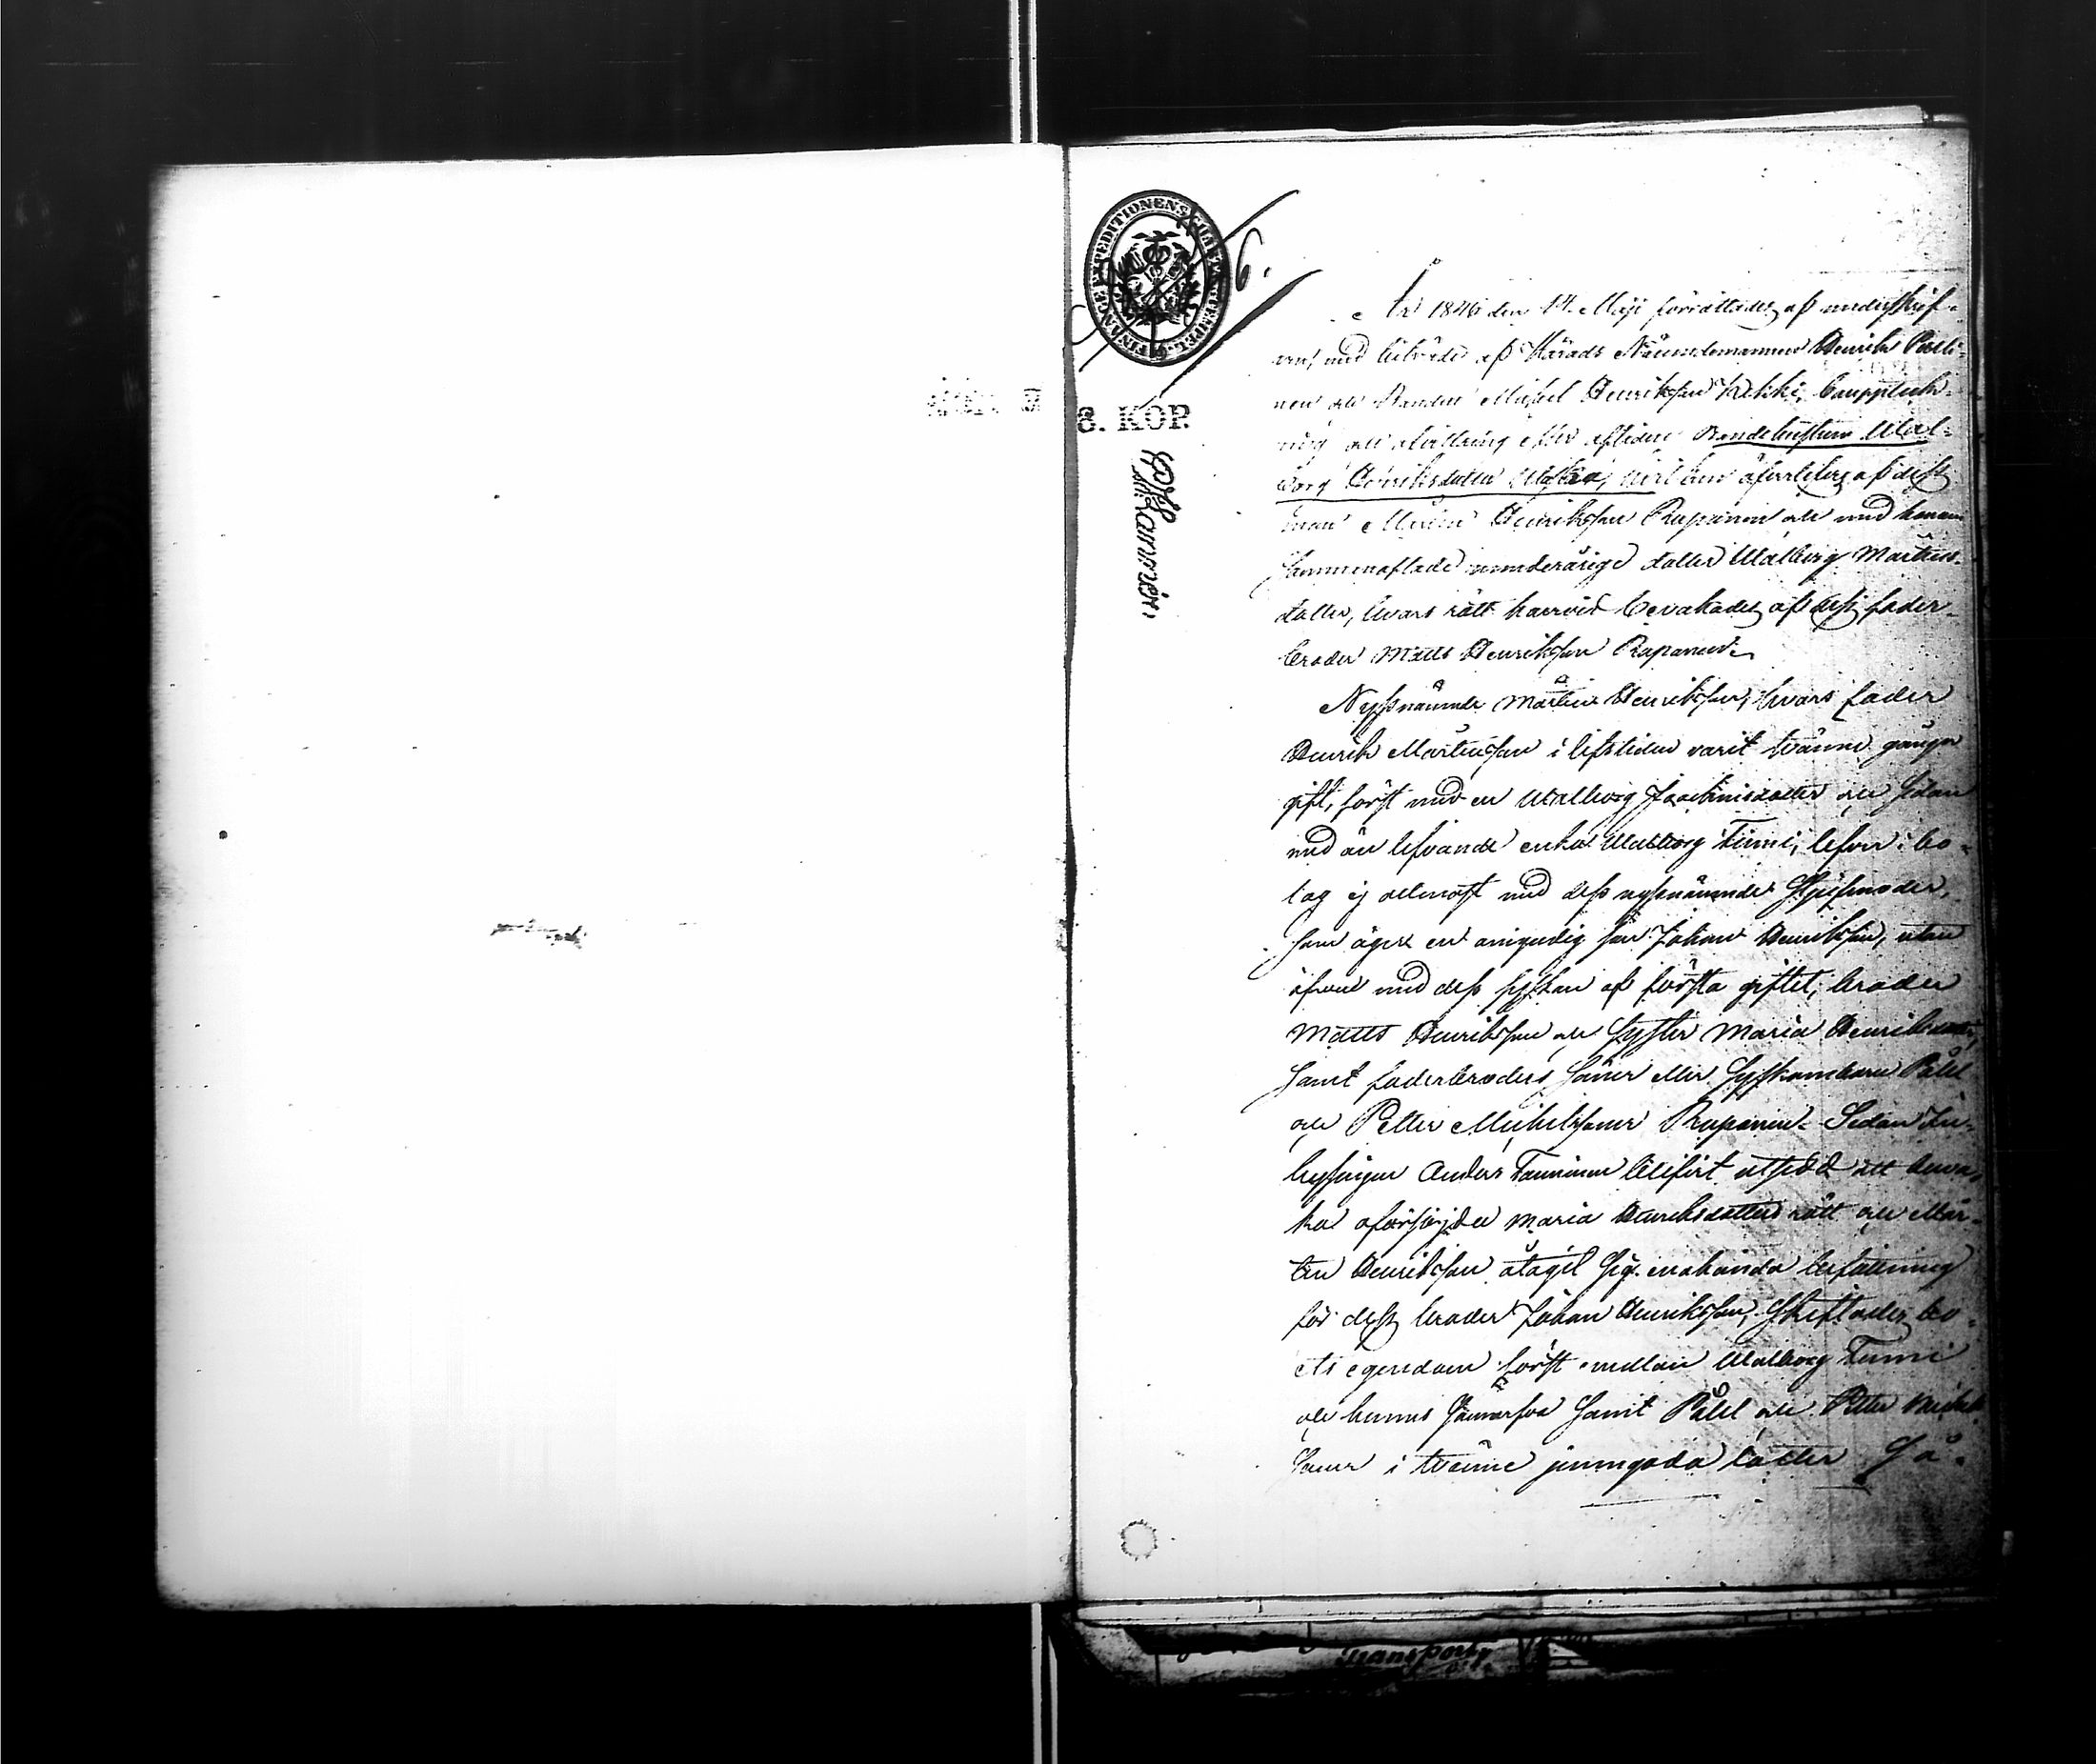 FINANCE EXPEDITIONENS CHARTÆ STEMPEL.
6.
8. KOP.
År 1846 den 14 Maji förrättades af underskrif-
ven, med biträde af Härads Nämndemannen Henrik Pælli-
nen och Bonden Michel Henriksson Kekki, Bouppteck-
ning och afvittring efter aflidne Bondehustrun Wal-
borg Henriksdotter, hvilken öfverlefves af dess
man Mårten Henriksson Reponen och med honom
sammanaflade minderåriga dotter Walborg Mårtens-
dotter, hvars rätt härvid bevakades af dess fader-
broder Matts Henriksson Reponen.
Nyssnämnde Mårten Henriksson, hvars fader
Henrik Mårtensson i lifstiden varit tvänne gånger
gift, först med en Walborg Joachimsdotter och sedan
med än lefvande enkan Walborg Timmi, lefver i bo-
lag ej allenast med dess nyssnämnde Styfmoder,
som äger en omyndig son Johan Henriksson, utan
äfven med dess syskon af första giftet, broder
Matts Henriksson och Syster Maria Henriksdotter,
samt faderbroders söner eller Syskonebarn Påhl
och Petter Michelssöner Reponen. Sedan In-
hysingen Anders Tanninen blifvit utsedd att beva-
ka oförsörjda Maria Henriksdotters rätt och Mår-
ten Henriksson åtagit sig enahanda befattning
för dess broder Johan Henriksson, skiftades bo-
ets egendom först emellan Walborg Timmi
och hennes samt Påhl och Petter Michels-
söner i tvänne jemngoda lotter Så-
Transport